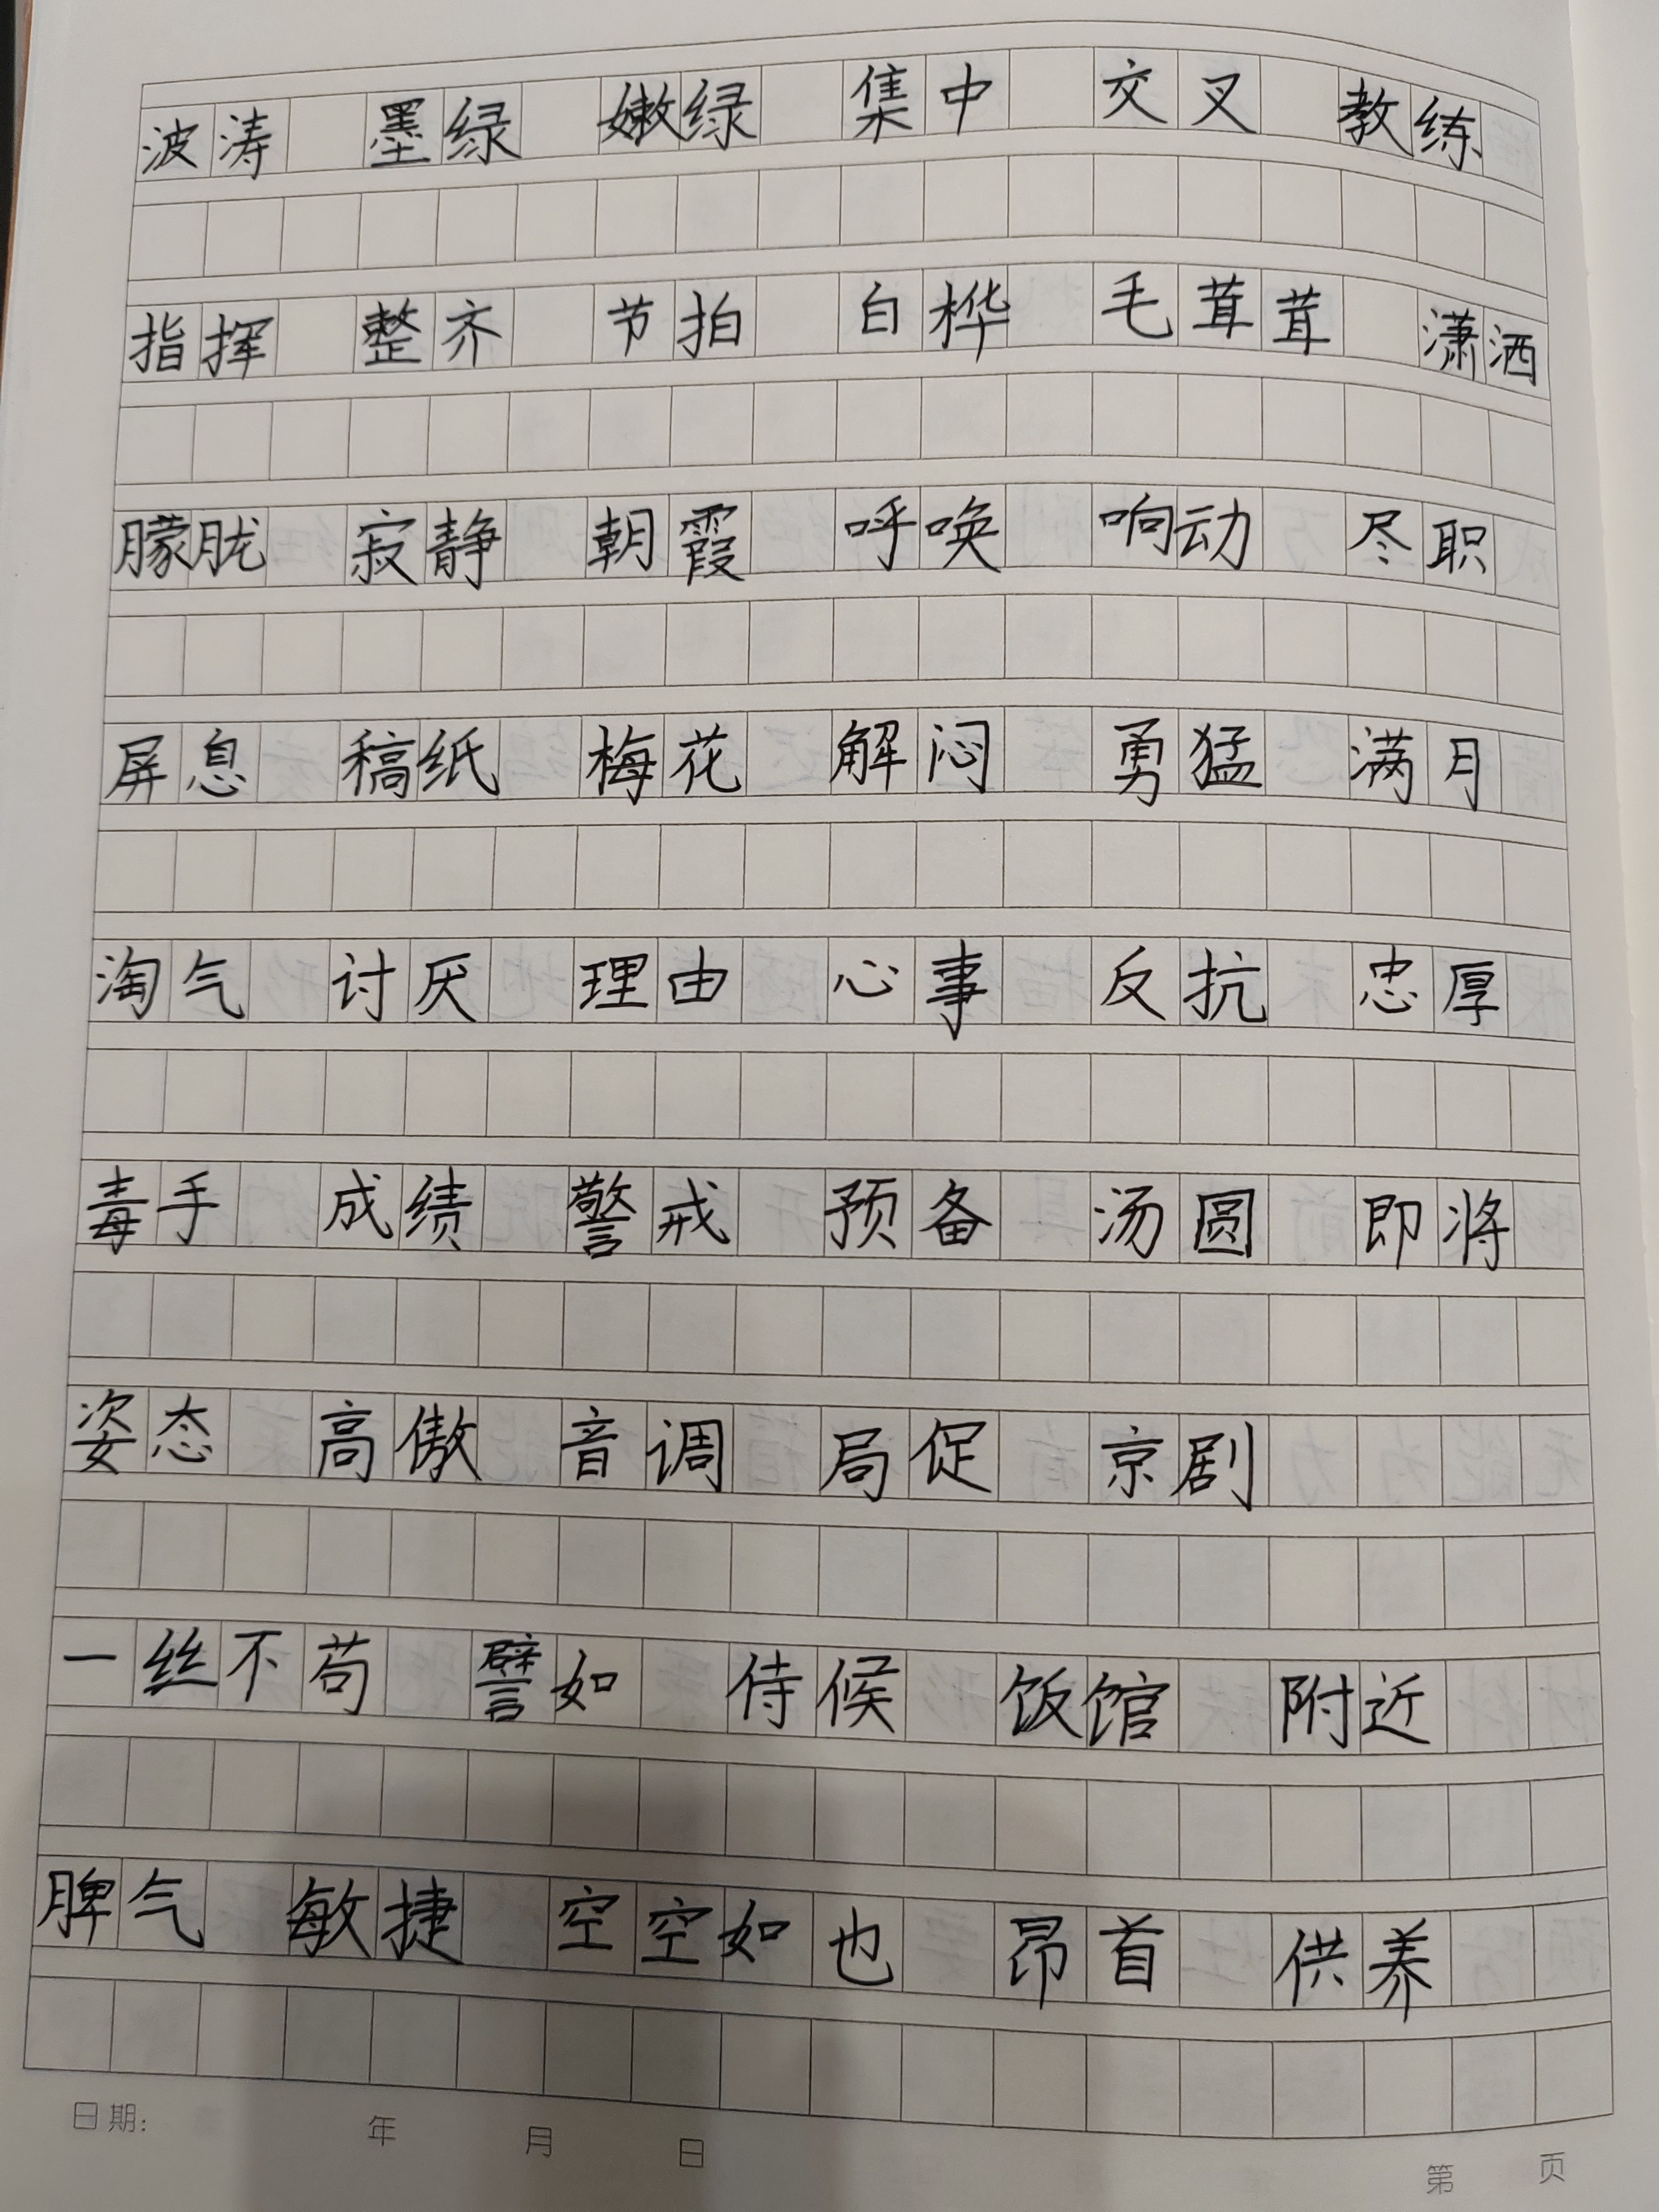 波涛 墨绿 嫩绿 集中 交叉 教练
指挥 整齐 节拍 白桦 毛茸茸 潇洒
朦胧 寂静 朝霞 呼唤 响动 尽职
屏息 稿纸 梅花 解闷 勇猛 满月
淘气 讨厌 理由 心事 反抗 忠厚
毒手 成绩 警戒 预备 汤圆 即将
姿态 高傲 音调 局促 京剧
一丝不苟 譬如 侍候 饭馆 附近
脾气 敏捷 空空如也 昂首 供养
日期: 年 月 日
第 页